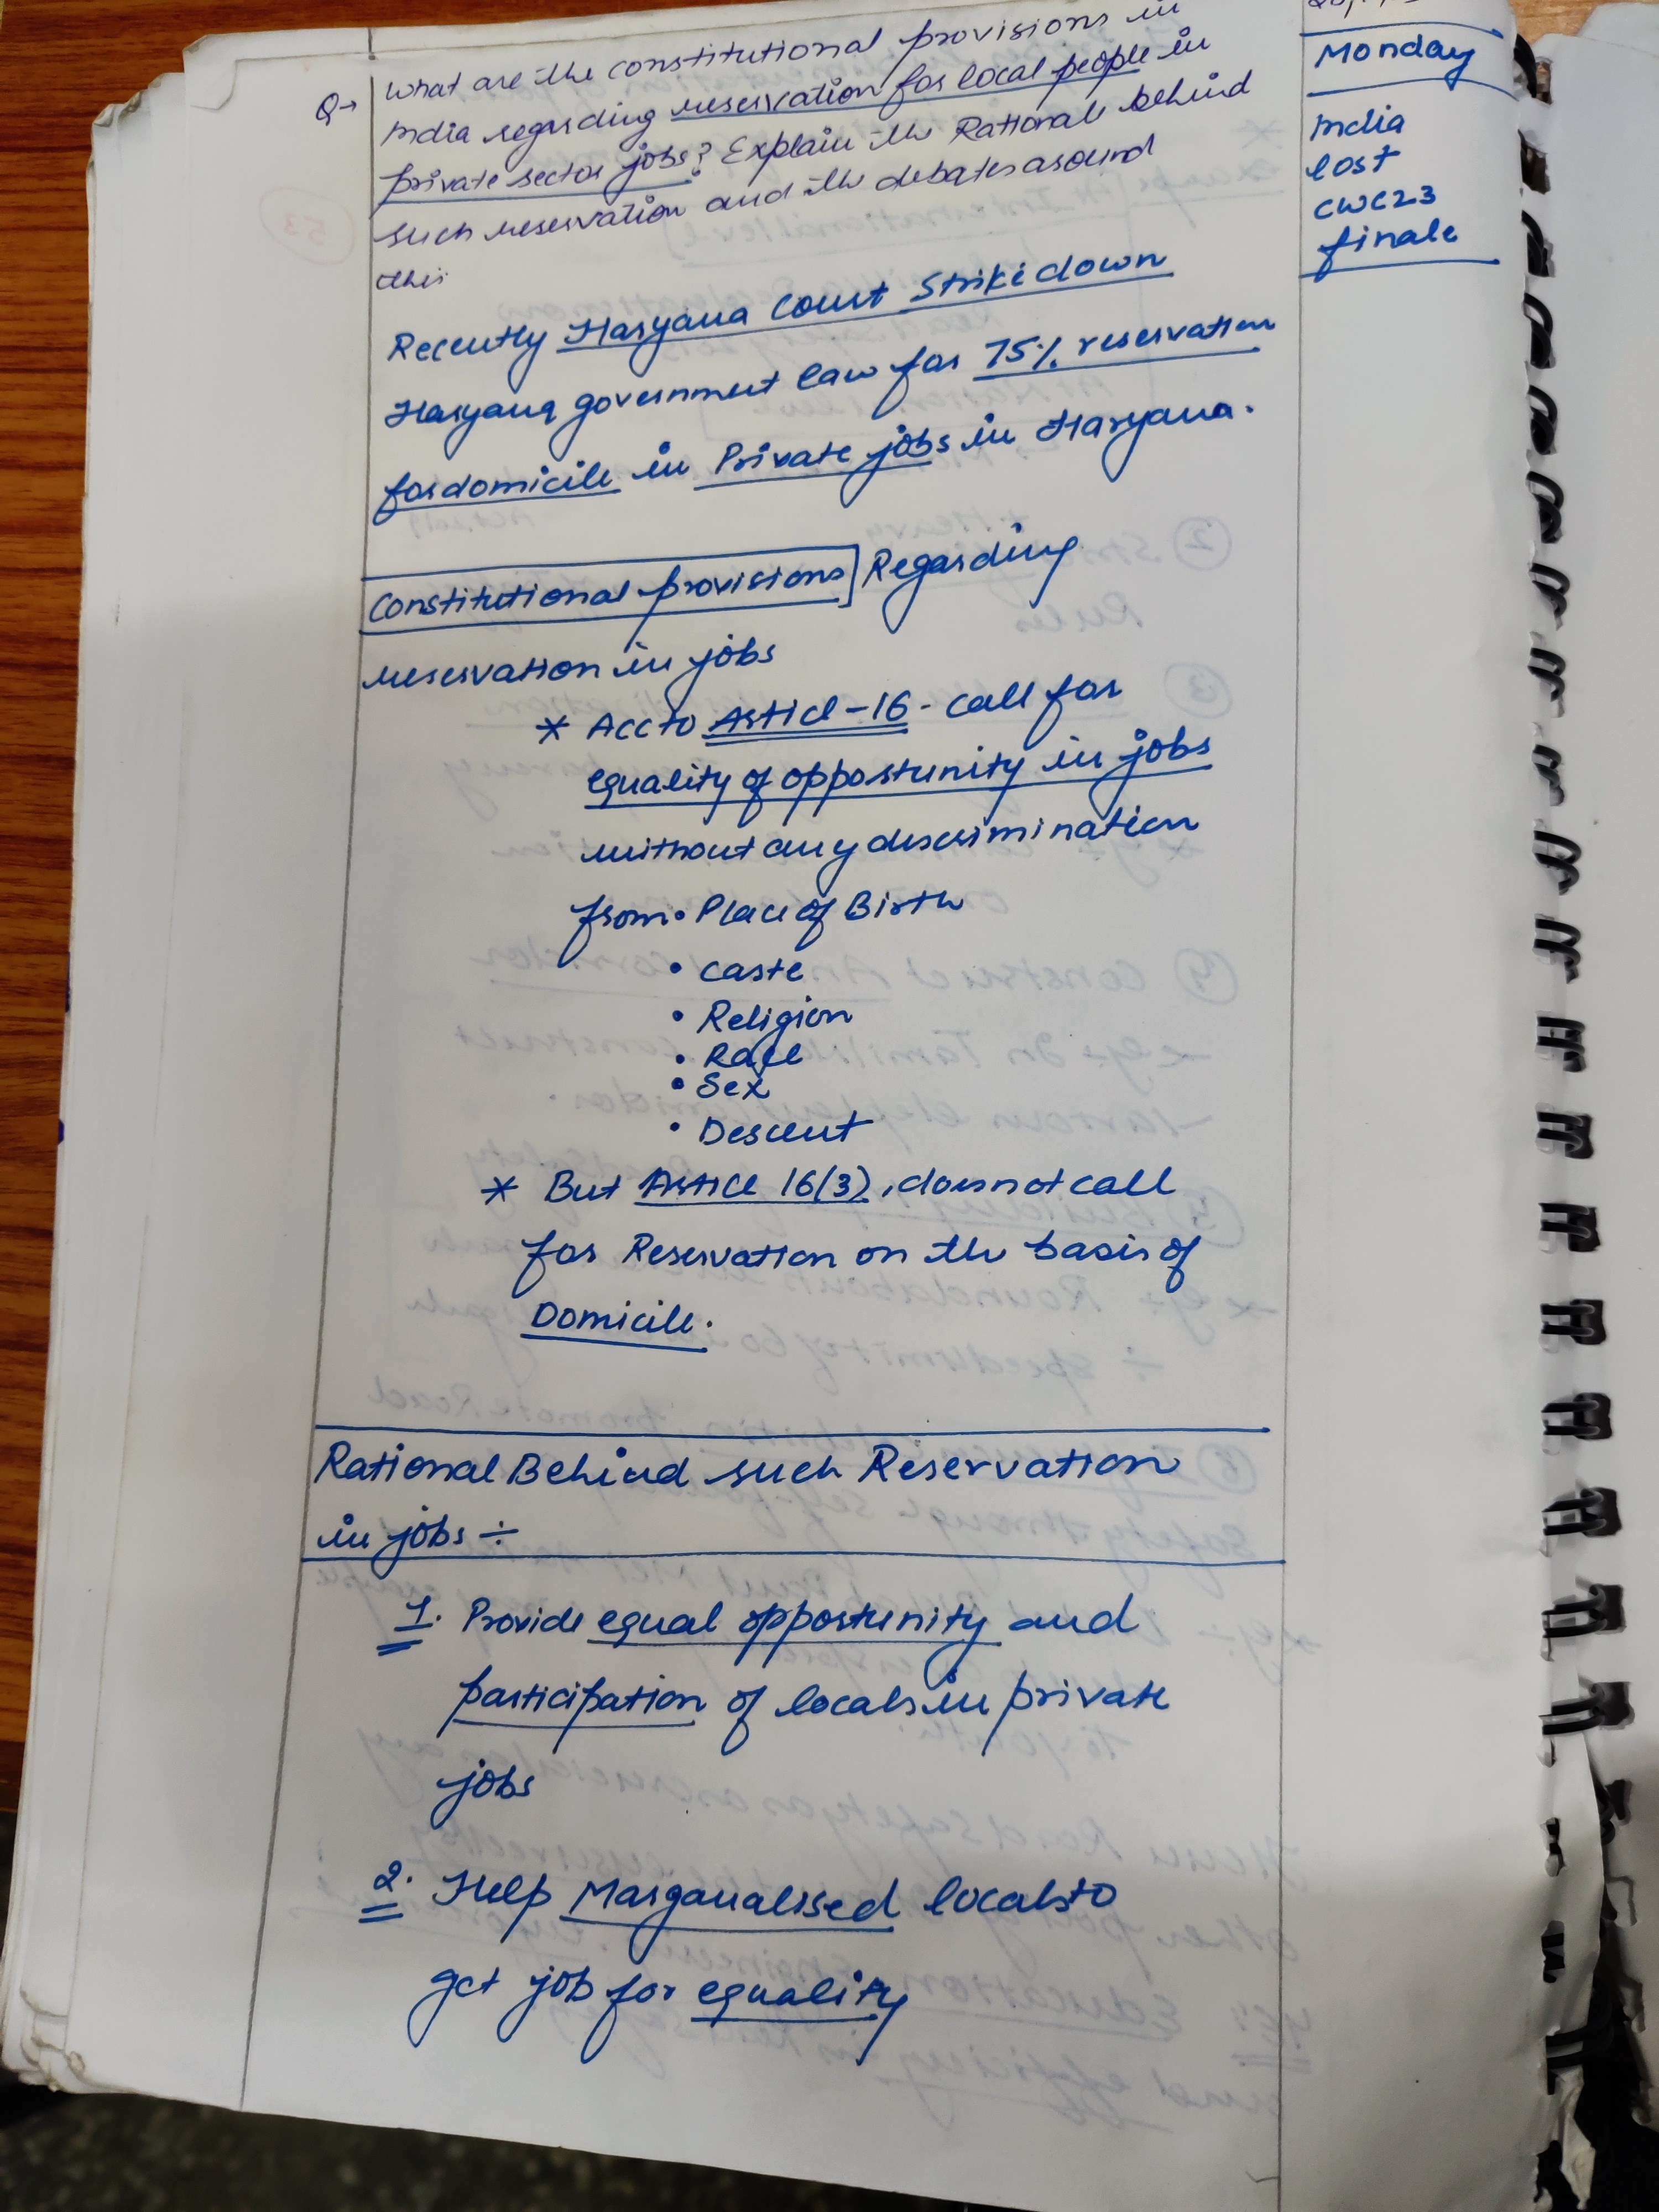 Q→ What are the constitutional provisions in
India regarding reservation for local people in
private sector jobs? Explain the Rational behind
such reservation and the debates around
this
Monday
India
lost
CWC23
finale
Recently Haryana Court Strike down
Haryana government law for 75% reservation
for domicile in Private jobs in Haryana.
Constitutional provisions Regarding
reservation in jobs
* Acc to Articl-16 - call for
equality of opportunity in jobs
without any descrimination
from • Place of Birth
• caste
• Religion
• Race
• Sex
• Descent
* But Articl 16(3), does not call
for Reservation on the basis of
Domicile.
Rational Behind such Reservation
in jobs ÷
1. Provide equal opportunity and
participation of locals in private
jobs
2. Help Marganalised locals to
get job for equality